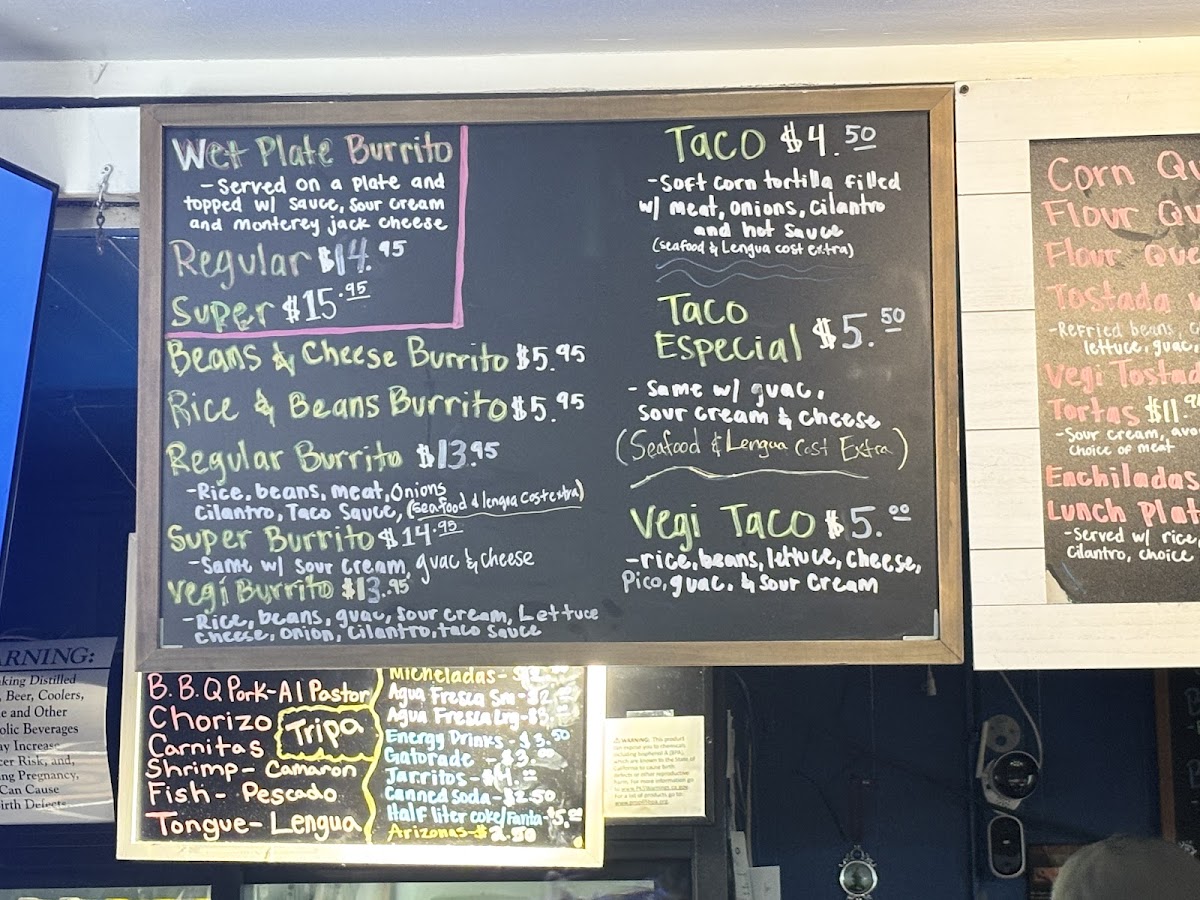 Wet Plate Burrito
- Served on a plate and
topped w/ sauce, sour cream
and monterey jack cheese
Regular $14.95
Super $15.95
Beans & Cheese Burrito $5.95
Rice & Beans Burrito $5.95
Regular Burrito $13.95
- Rice, beans, meat, Onions
Cilantro, Taco Sauce, (seafood & lengua cost extra)
Super Burrito $14.95
- Same w/ sour cream, guac & cheese
Vegi Burrito $13.95
- Rice, beans, guac, sour cream, Lettuce
cheese, onion, cilantro, taco sauce
Taco $4.50
- Soft corn tortilla filled
w/ meat, onions, cilantro
and hot sauce
(seafood & Lengua cost extra)
Taco
Especial $5.50
- Same w/ guac,
sour cream & cheese
(Seafood & Lengua Cost Extra)
Vegi Taco $5.00
- rice, beans, lettuce, cheese,
Pico, guac. & sour cream
Corn
Flour
Flour
Tostada
- Refried beans,
lettuce, guac,
Vegi
Tortas $11.
- Sour cream,
choice of meat
Enchiladas
Lunch
- Served w/ rice,
cilantro, choice
B.B.Q Pork - Al Pastor
Chorizo
Tripa
Carnitas
Shrimp - Camaron
Fish - Pescado
Tongue - Lengua
Micheladas -
Agua Fresca Sm -
Agua Fresca Lrg -
Energy Drinks - $3.50
Gatorade - $3.
Jarritos - $4.
Canned Soda - $2.50
Half liter coke/Fanta - $5.00
Arizonas - $2.50
Distilled
Beer, Coolers,
and Other
Beverages
Increase
Risk, and,
Pregnancy,
Can Cause
Birth Defects
WARNING: This product